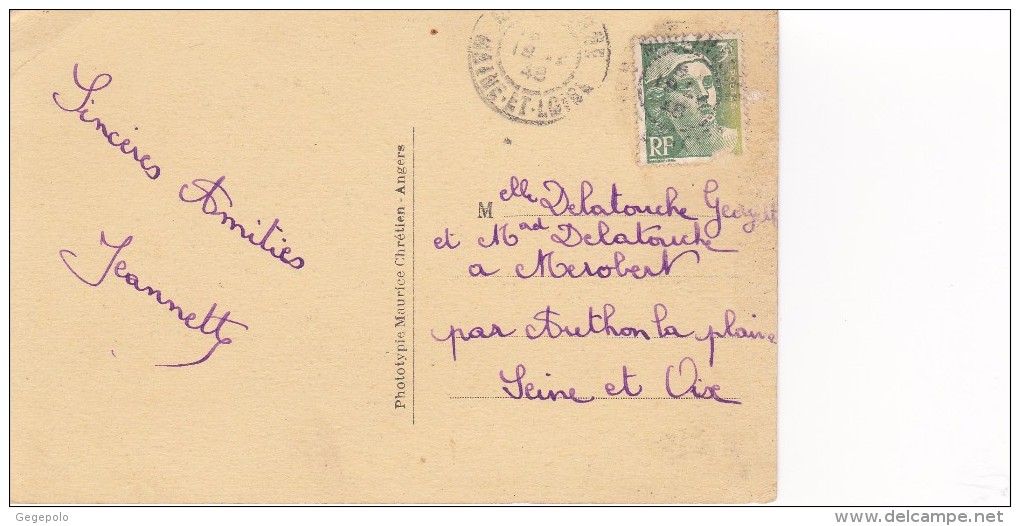 Sincères Amitiés
Jeannette
Phototypie Maurice Chrétien - Angers
MAINE-ET-LOIRE
48
RF
Melle Delatouche
et Mad Delatouche
a Merobert
par Authon la plaine
Seine et Oix
Gegepolo
delcampe.net